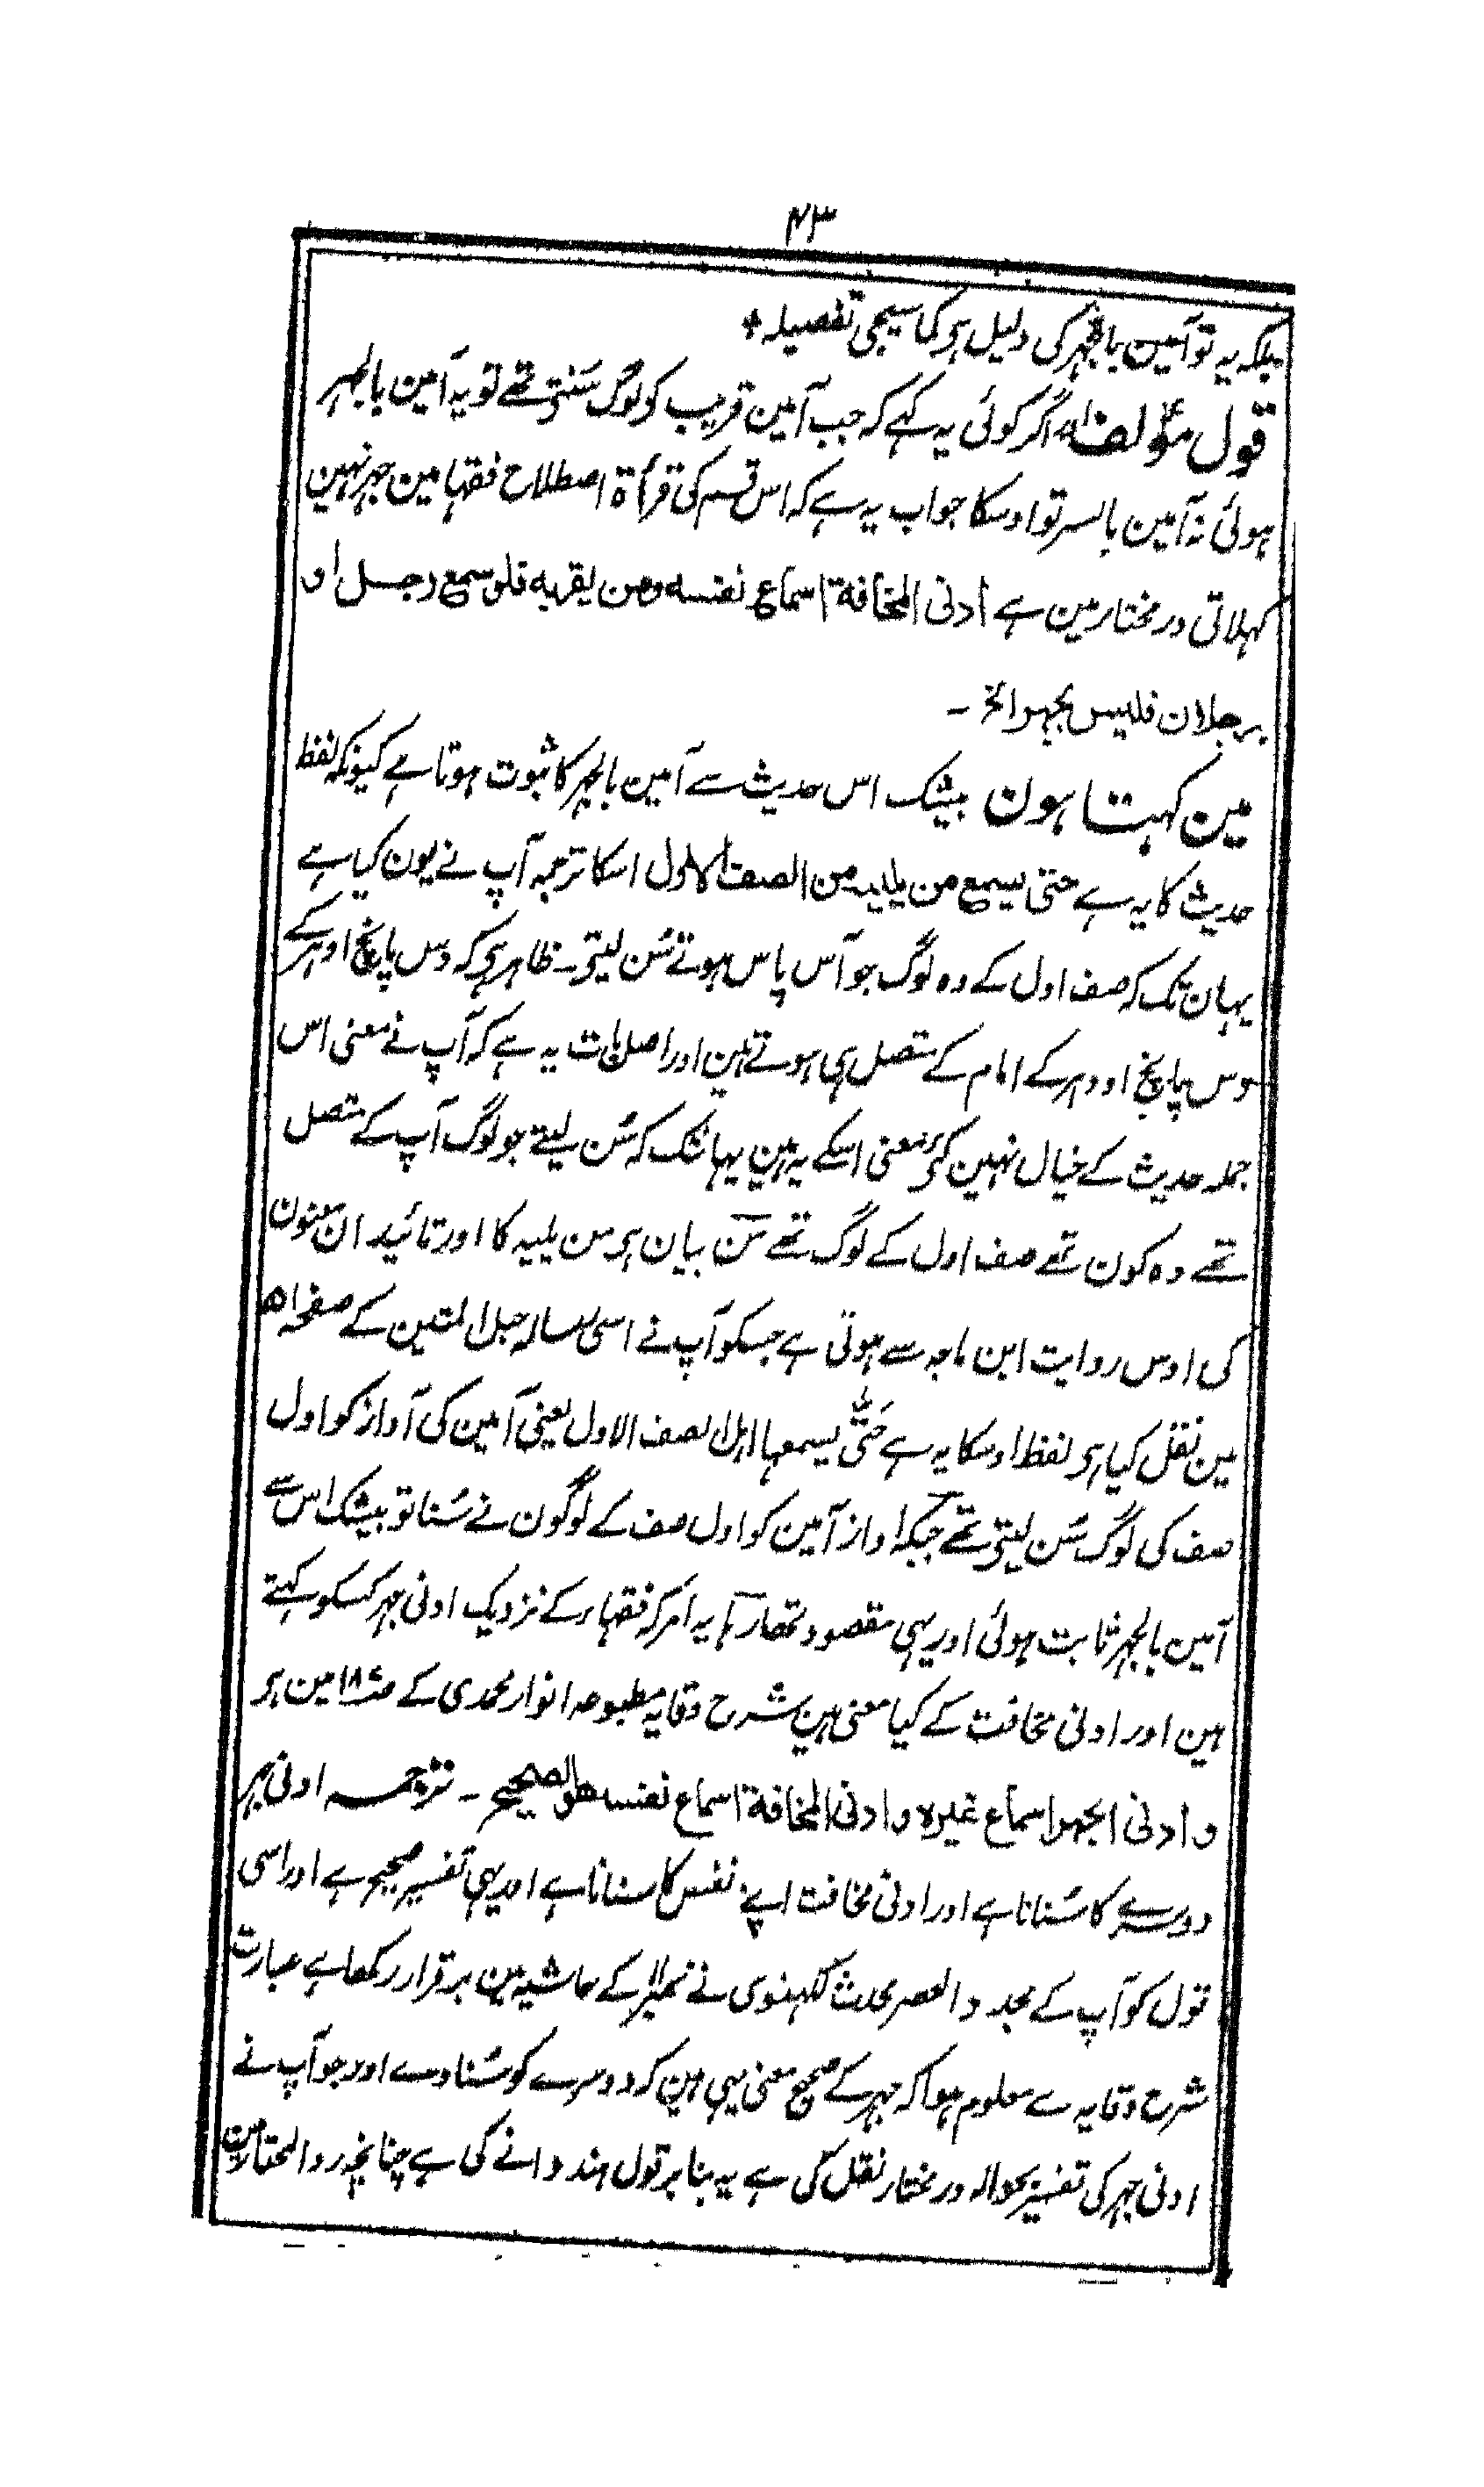 ۴۳
بلکہ یہ تو آمین بالجہر کی دلیل ہی کما سیجی تفصیلہ +
قول مؤلف اگر کوئی یہ کہے کہ جب آمین قریب کو لوگ سنتے تھے تو یہ آمین بالجہر
ہوئی نہ آمین بالسر تو اوسکا جواب یہ ہے کہ اس قسم کی قرأۃ اصطلاح فقہا مین جہر نہین
کہلاتی در مختار مین ہے أدنى المخافة اسماع نفسه ومن يقربه فلو سمع رجل او
رجلان فليس بجهر الخ ۔
مین کہتا ہون بیشک اس حدیث سے آمین بالجہر کا ثبوت ہوتا ہے کیونکہ لفظ
حدیث کا یہ ہے حتى يسمع من يليه من الصف الاول اسکا ترجمہ آپ نے یون کیا ہے
یہان تک کہ صف اول کے وہ لوگ جو آس پاس ہوتے سُن لیتے۔ ظاہر ہی کہ دس پانچ اوہر کے
دس پانچ اودہر کے امام کے متصل ہی ہوتے ہین اور اصل بات یہ ہے کہ آپ نے معنی اس
جملہ حدیث کے خیال نہین کئے معنی اسکے یہ ہین یہانتک کہ سُن لیتے جو لوگ آپ کے متصل
تھے وہ کون تھے صف اول کے لوگ تھے مِن بیان ہی من یلیہ کا اور تائید ان معنون
کی اوس روایت ابن ماجہ سے ہوتی ہے جسکو آپ نے اسی رسالہ حبل المتین کے صفحہ ۵۱
مین نقل کیا ہی لفظ اوسکا یہ ہے حَتّٰی یسمعہا اہل الصف الاول یعنی آمین کی آواز کو اول
صف کی لوگ سُن لیتے تھے جبکہ اواز آمین کو اول صف کے لوگون نے سُنا تو بیشک اس سے
آمین بالجہر ثابت ہوئی اور یہی مقصود تھا رہا یہ امر کہ فقہاء کے نزدیک ادنی جہر کسکو کہتے
ہین اور ادنی مخافت کے کیا معنی ہین شرح وقایہ مطبوعہ انوار محمدی کے صفحہ ۱۸ مین ہر
وأدنى الجهر اسماع غيره وادنى المخافة اسماع نفسه هو الصحيح ۔ ترجمہ ادنی جہر
دوسرے کا سُنانا ہے اور ادنی مخافت اپنے نفس کا سنانا ہے اور یہی تفسیر صحیح ہے اور اسی
قول کو آپ کے مجدد العصر محدث لکہنوی نے کے حاشیہ مین برقرار رکھا ہے عبارت
شرح وقایہ سے معلوم ہوا کہ جہر کے صحیح معنی یہی ہین کہ دوسرے کو سُنا وے اور جو آپ نے
ادنی جہر کی تفسیر بحوالہ در مختار نقل کی ہے یہ بنا بر قول ہندوانے کی ہے چنانچہ رد المحتار مین